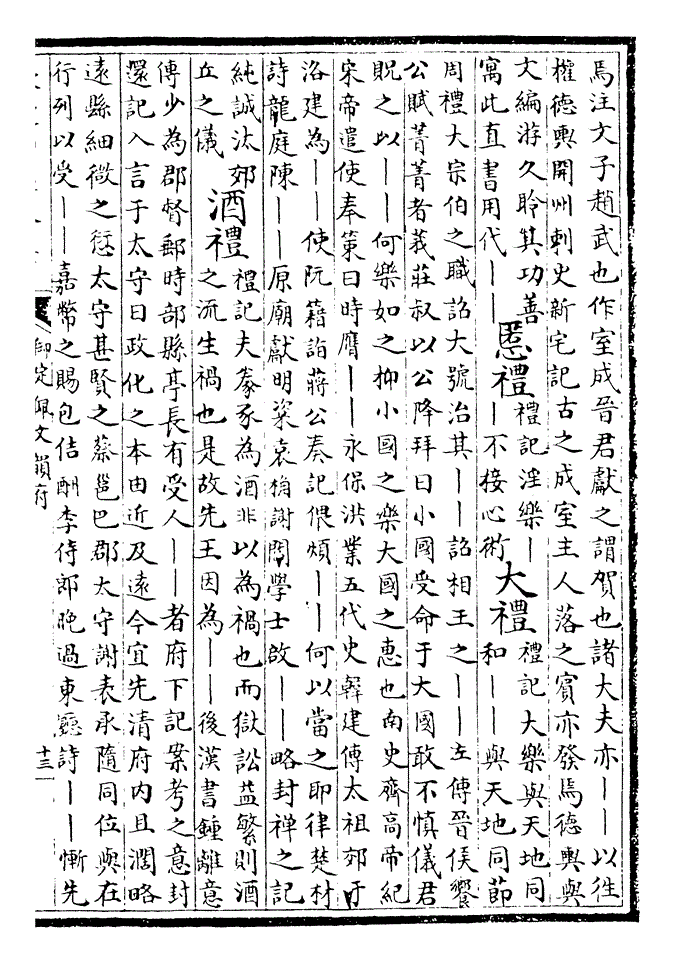 焉注文子趙武也作室成晉君獻之謂賀也諸大夫亦――以徃
權德輿開州刺史新宅記古之成室主人落之賓亦發焉德輿與
文編游久聆其功善
寓此直書用代――
慝禮
禮記淫樂―
―不接心術
大禮
禮記大樂與天地同
和――與天地同節
周禮大宗伯之職詔大號治其――詔相王之――左傳晉侯饗
公賦菁菁者莪莊叔以公降拜曰小國受命于大國敢不慎儀君
貺之以――何樂如之抑小國之樂大國之惠也南史齊高帝紀
宋帝遣使奉策曰時膺――永保洪業五代史韓建傳太祖郊于
洛建為――使阮籍詣蔣公奏記偎煩――何以當之耶律楚材
詩龍庭陳――原廟獻明粢袁桷謝閣學士啟――略封禪之記
純誠汰郊
丘之儀
酒禮
禮記夫豢豕為酒非以為禍也而獄訟益繁則酒
之流生禍也是故先王因為――後漢書鍾離意
傳少為郡督郵時部縣亭長有受人――者府下記案考之意封
還記入言于太守曰政化之本由近及遠今宜先清府内且濶略
遠縣細微之愆太守甚賢之蔡邕巴郡太守謝表承隨同位與在
行列以受――嘉幣之賜包佶酬李侍郎晚過東廳詩――慚先
御定佩文韻府
十三